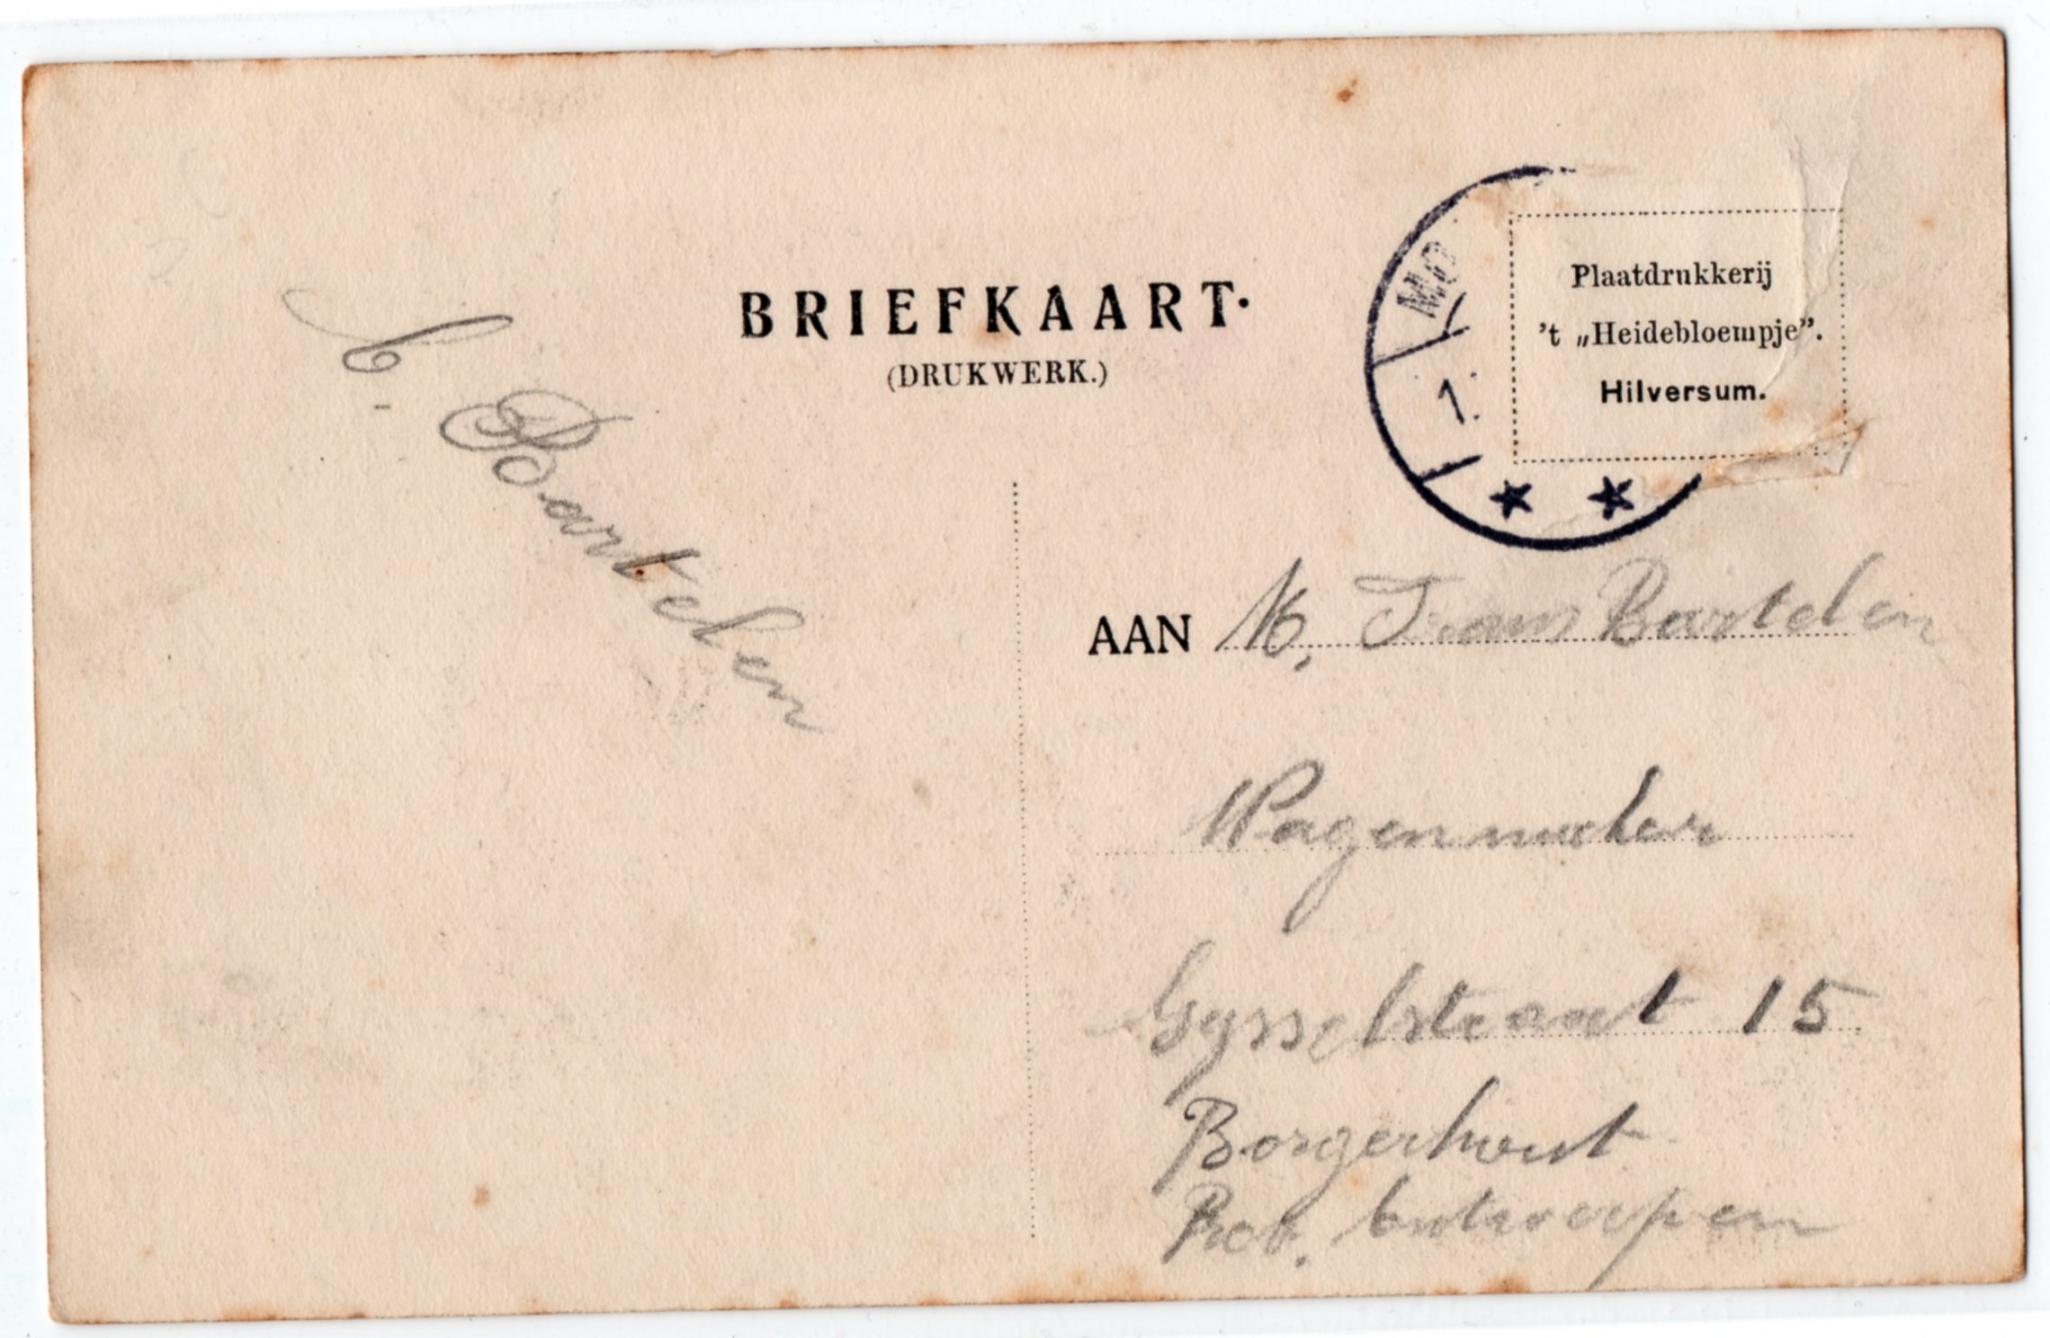 BRIEFKAART.
(DRUKWERK.)
MO
1.
Plaatdrukkerij
't „Heidebloempje".
Hilversum.
Bartelen
AAN M. Frans Bartelen
Wagenmaker
Gysselstraat 15
Borgerhout
Prov. Antwerpen